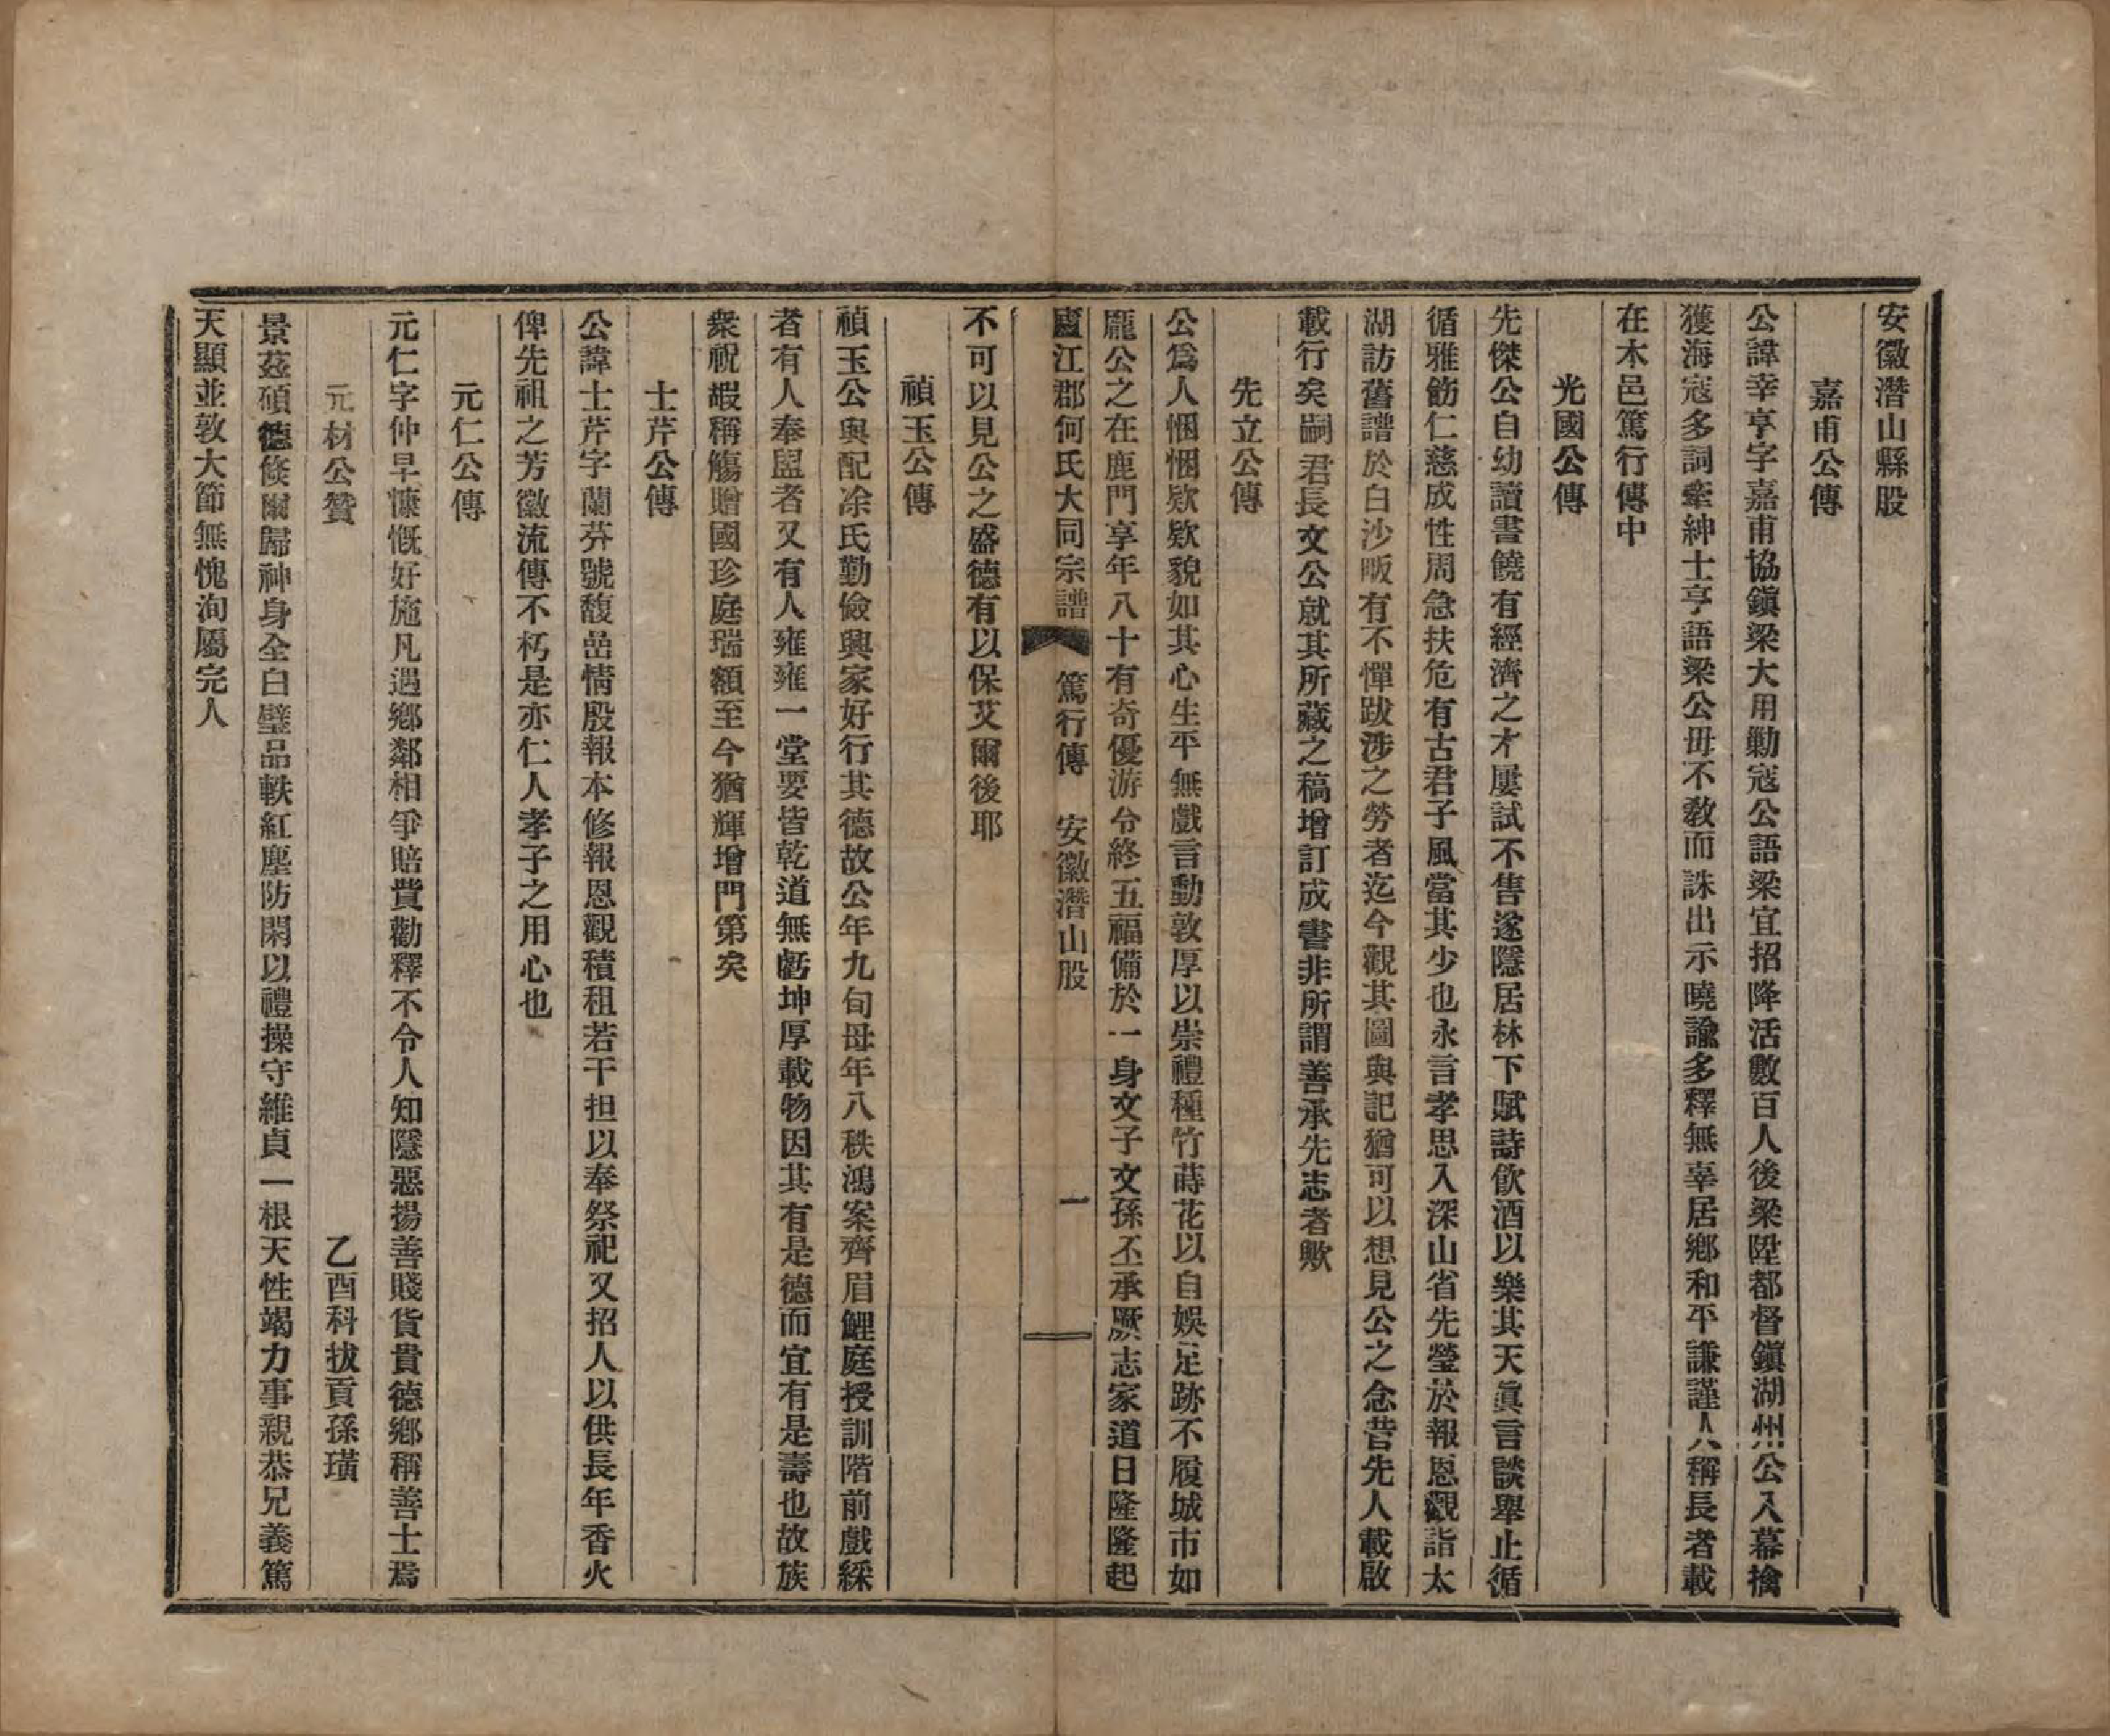 安徽潛山縣股
嘉甫公傳
公諱幸亨字嘉甫協鎮梁大用勦寇公語梁宜招降活數百人後梁陞都督鎮湖州公入幕擒
獲海寇多詞牽紳士亨語梁公毋不敎而誅出示曉諭多釋無辜居鄉和平謙謹人稱長者載
在木邑篤行傳中
光國公傳
先傑公自幼讀書饒有經濟之才屢試不售遂隱居林下賦詩飮酒以樂其天眞言談舉止循
循雅飭仁慈成性周急扶危有古君子風當其少也永言孝思入深山省先瑩於報恩觀詣太
湖訪舊譜於白沙畈有不憚跋涉之勞者迄今觀其圖與記猶可以想見公之念昔先人載啟
載行矣嗣君長文公就其所藏之稿增訂成書非所謂善承先志者歟
先立公傳
公爲人悃悃欵欵貌如其心生平無戲言動敦厚以崇禮種竹蒔花以自娛足跡不履城市如
龐公之在鹿門享年八十有奇優游令終五福備於一身文子文孫丕承厥志家道日隆隆起
廬江郡何氏大同宗譜 篤行傳 安徽潛山股 一
不可以見公之盛德有以保艾爾後耶
禎玉公傳
禎玉公與配凃氏勤儉興家好行其德故公年九旬母年八秩鴻案齊眉鯉庭授訓階前戲綵
者有人奉盥者又有人雍雍一堂要皆乾道無虧坤厚載物因其有是德而宜有是壽也故族
衆祝嘏稱觴贈國珍庭瑞額至今猶輝增門第矣
士芹公傳
公諱士芹字蘭芬號馥嵒情殷報本修報恩觀積租若干担以奉祭祀又招人以供長年香火
俾先祖之芳徽流傳不朽是亦仁人孝子之用心也
元仁公傳
元仁字仲早慷慨好施凡遇鄉鄰相爭賠費勸釋不令人知隱惡揚善賤貨貴德鄉稱善士焉
元材公贊 乙酉科拔貢孫璜
景茲碩德倏爾歸神身全白璧品軼紅塵防閑以禮操守維貞一根天性竭力事親恭兄義篤
天顯並敦大節無愧洵屬完人